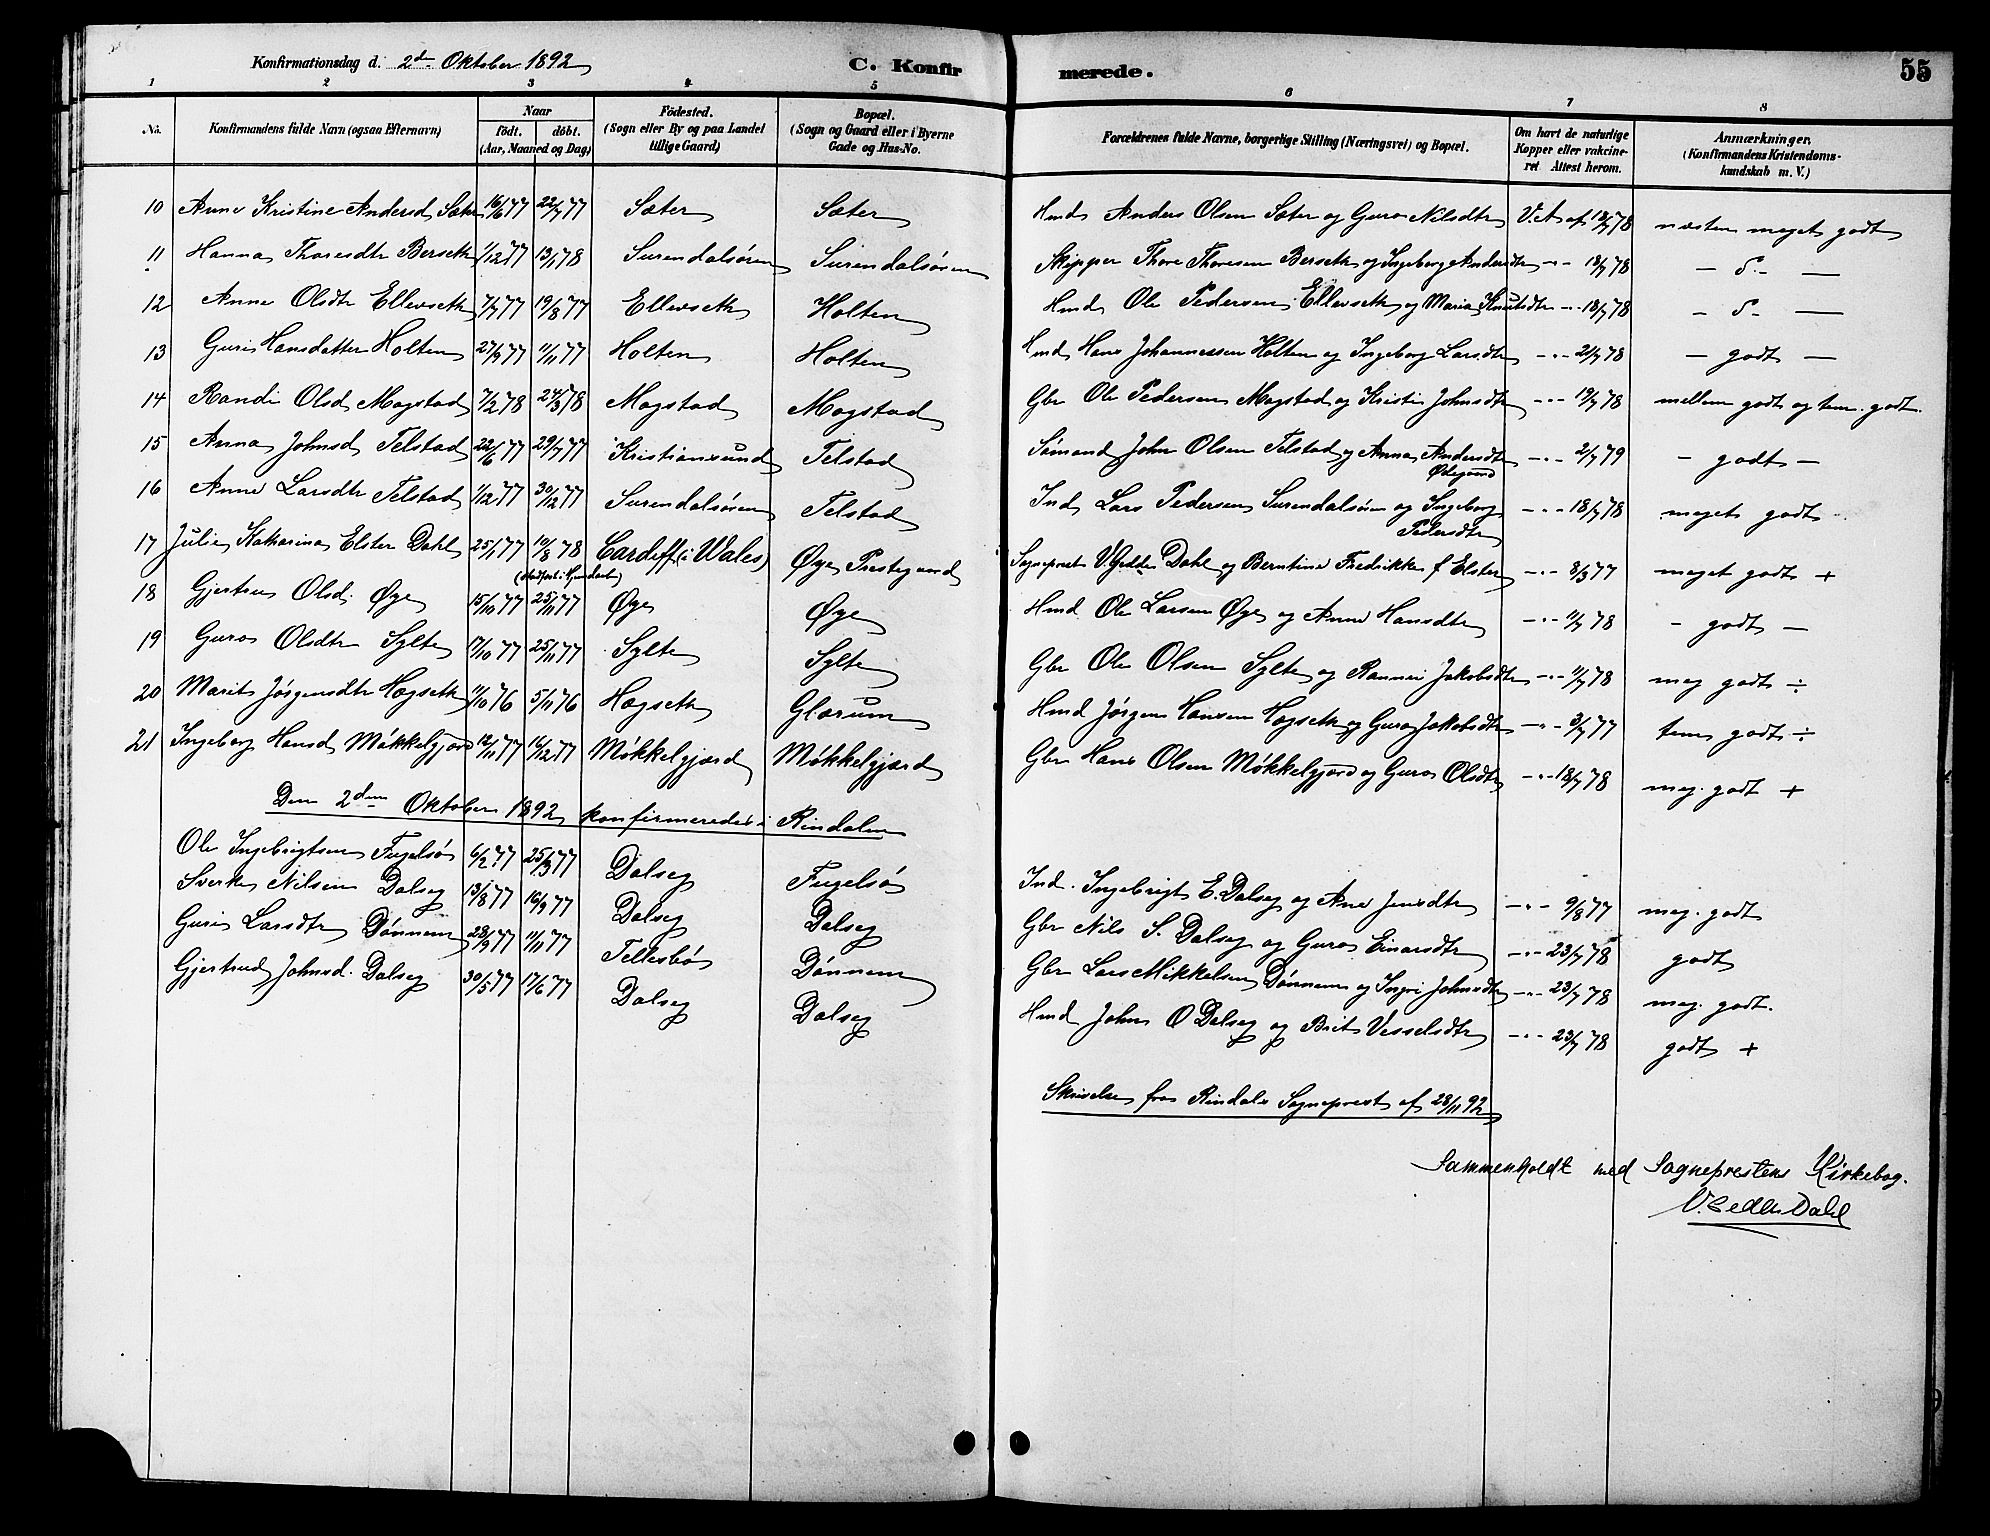 Konfirmationsdag d. 2den Oktober 1892
C. Konfirmerede.
55
1 2 3 4 5 6 7 8
No. Konfirmandens fulde Navn (ogsaa Efternavn) Naar födt. döbt. (Aar, Maaned og Dag) Födested. (Sogn eller By og paa Landet tillige Gaard) Bopæl. (Sogn og Gaard eller i Byerne Gade og Hus-No. Forældrenes fulde Navne, borgerlige Stilling (Næringsvei) og Bopæl. Om havt de naturlige Kopper eller vakcineret Attest herom. Anmærkninger. (Konfirmandens Kristendomskundskab m. V.)
10 Anne Kristine Andersd Sæter 16/6 77 22/7 77 Sæter Sæter Hmd Anders Olsen Sæter og Guro Nilsdtr V.A af 18/7 78 næsten meget godt
11 Hanna Thoresdtr Berseth 1/12 77 13/1 78 Surendalsøren Surendalsøren Skipper Thore Thoresen Berseth og Ingeborg Andersdtr -"- 18/7 78 – d° –
12 Anne Olsdtr Ellevseth 7/7 77 19/8 77 Ellevseth Holten Hmd Ole Pedersen Ellevseth og Maria Knutsdtr -"- 18/7 78 – d° –
13 Guri Hansdatter Holten 27/9 77 11/11 77 Holten Holten Hmd Hans Johannessen Holten og Ingeborg Larsdtr -"- 21/7 78 – godt –
14 Randi Olsd Mogstad 7/2 78 24/3 78 Mogstad Mogstad Gbr Ole Pedersen Mogstad og Kristi Johnsdtr -"- 19/7 78 mellem godt og tem. godt.
15 Anna Johnsd Telstad 22/6 77 29/7 77 Kristiansund Telstad Sømand John Olsen Telstad og Anna Andersdtr -"- 2/7 79 – godt –
16 Anne Larsdtr Telstad 1/12 77 30/12 77 Surendalsøren Telstad Ind Lars Pedersen Surendalsøren og Ingeborg Pedersdtr -"- 18/7 78 meget godt
17 Julie Katharina Elster Dahl 25/1 77 10/8 78 Cardiff (i Wales) Øye Prestegaard Sogneprest V. Gedde Dahl og Berntine Fredrikke f Elster -"- 8/3 77 meget godt +
18 Gjertru Olsd. Øye 15/10 77 25/11 77 Øye Øye Hmd Ole Larsen Øye og Anne Hansdtr -"- 11/7 78 – godt –
19 Guro Olsdtr Sylte 17/10 77 25/11 77 Sylte Sylte Gbr Ole Olsen Sylte og Rannei Jakobsdtr -"- 11/7 78 meg godt ÷
20 Marit Jørgensdtr Hægseth 11/10 76 5/11 76 Hægseth Glærum Hmd Jørgen Hansen Hægseth og Guro Jakobsdtr -"- 3/7 77 tem godt ÷
21 Ingeborg Hansd Møkkelgjærd 12/11 77 16/12 77 Møkkelgjærd Møkkelgjærd Gbr Hans Olsen Møkkelgjærd og Guro Olsdtr -"- 18/7 78 meg. godt +
Den 2den Oktober 1892 konfirmerede i Rindalen
Ole Ingebrigtsen Fugelsø 6/2 77 25/3 77 Dalseg Fugelsø Ind. Ingebrigt E. Dalseg og Ane Jensdtr -"- 9/8 77 meg. godt
Sverke Nilsen Dalseg 13/8 77 16/9 77 Dalseg Dalseg Gbr Nils S. Dalseg og Guro Einarsdtr -"- 23/7 78 godt
Guri Larsdtr Dønnem 28/9 77 11/11 77 Tellesbø Dønnem Gbr Lars Mikkelsen Dønnem og Ingri Johnsdtr -"- 23/7 78 meg. godt.
Gjertrud Johnsd. Dalseg 30/5 77 17/6 77 Dalseg Dalseg Hmd John O Dalseg og Brit Vesselsdtr -"- 23/7 78 godt +
Skrivelse fra Rindals Sogneprest af 28/11 92
Sammenholdt med Sogneprestens Kirkebog.
V. Gedde Dahl